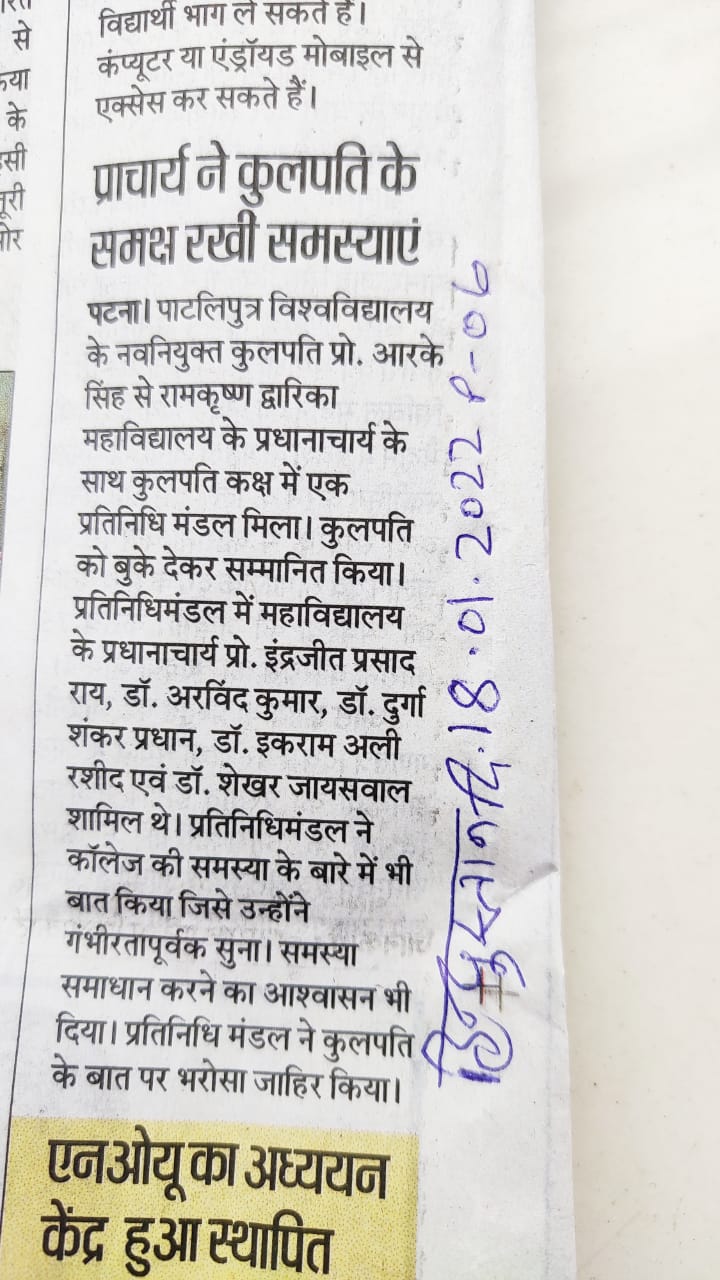 विद्यार्थी भाग ले सकते हैं।
कंप्यूटर या एंड्रॉयड मोबाइल से
एक्सेस कर सकते हैं।
प्राचार्य ने कुलपति के
समक्ष रखी समस्याएं
पटना। पाटलिपुत्र विश्वविद्यालय
के नवनियुक्त कुलपति प्रो. आरके
सिंह से रामकृष्ण द्वारिका
महाविद्यालय के प्रधानाचार्य के
साथ कुलपति कक्ष में एक
प्रतिनिधि मंडल मिला। कुलपति
को बुके देकर सम्मानित किया।
प्रतिनिधिमंडल में महाविद्यालय
के प्रधानाचार्य प्रो. इंद्रजीत प्रसाद
राय, डॉ. अरविंद कुमार, डॉ. दुर्गा
शंकर प्रधान, डॉ. इकराम अली
रशीद एवं डॉ. शेखर जायसवाल
शामिल थे। प्रतिनिधिमंडल ने
कॉलेज की समस्या के बारे में भी
बात किया जिसे उन्होंने
गंभीरतापूर्वक सुना। समस्या
समाधान करने का आश्वासन भी
दिया। प्रतिनिधि मंडल ने कुलपति
के बात पर भरोसा जाहिर किया।
एनओयू का अध्ययन
केंद्र हुआ स्थापित
से
के
हिन्दुस्तान दि. 18.01.2022 P-06